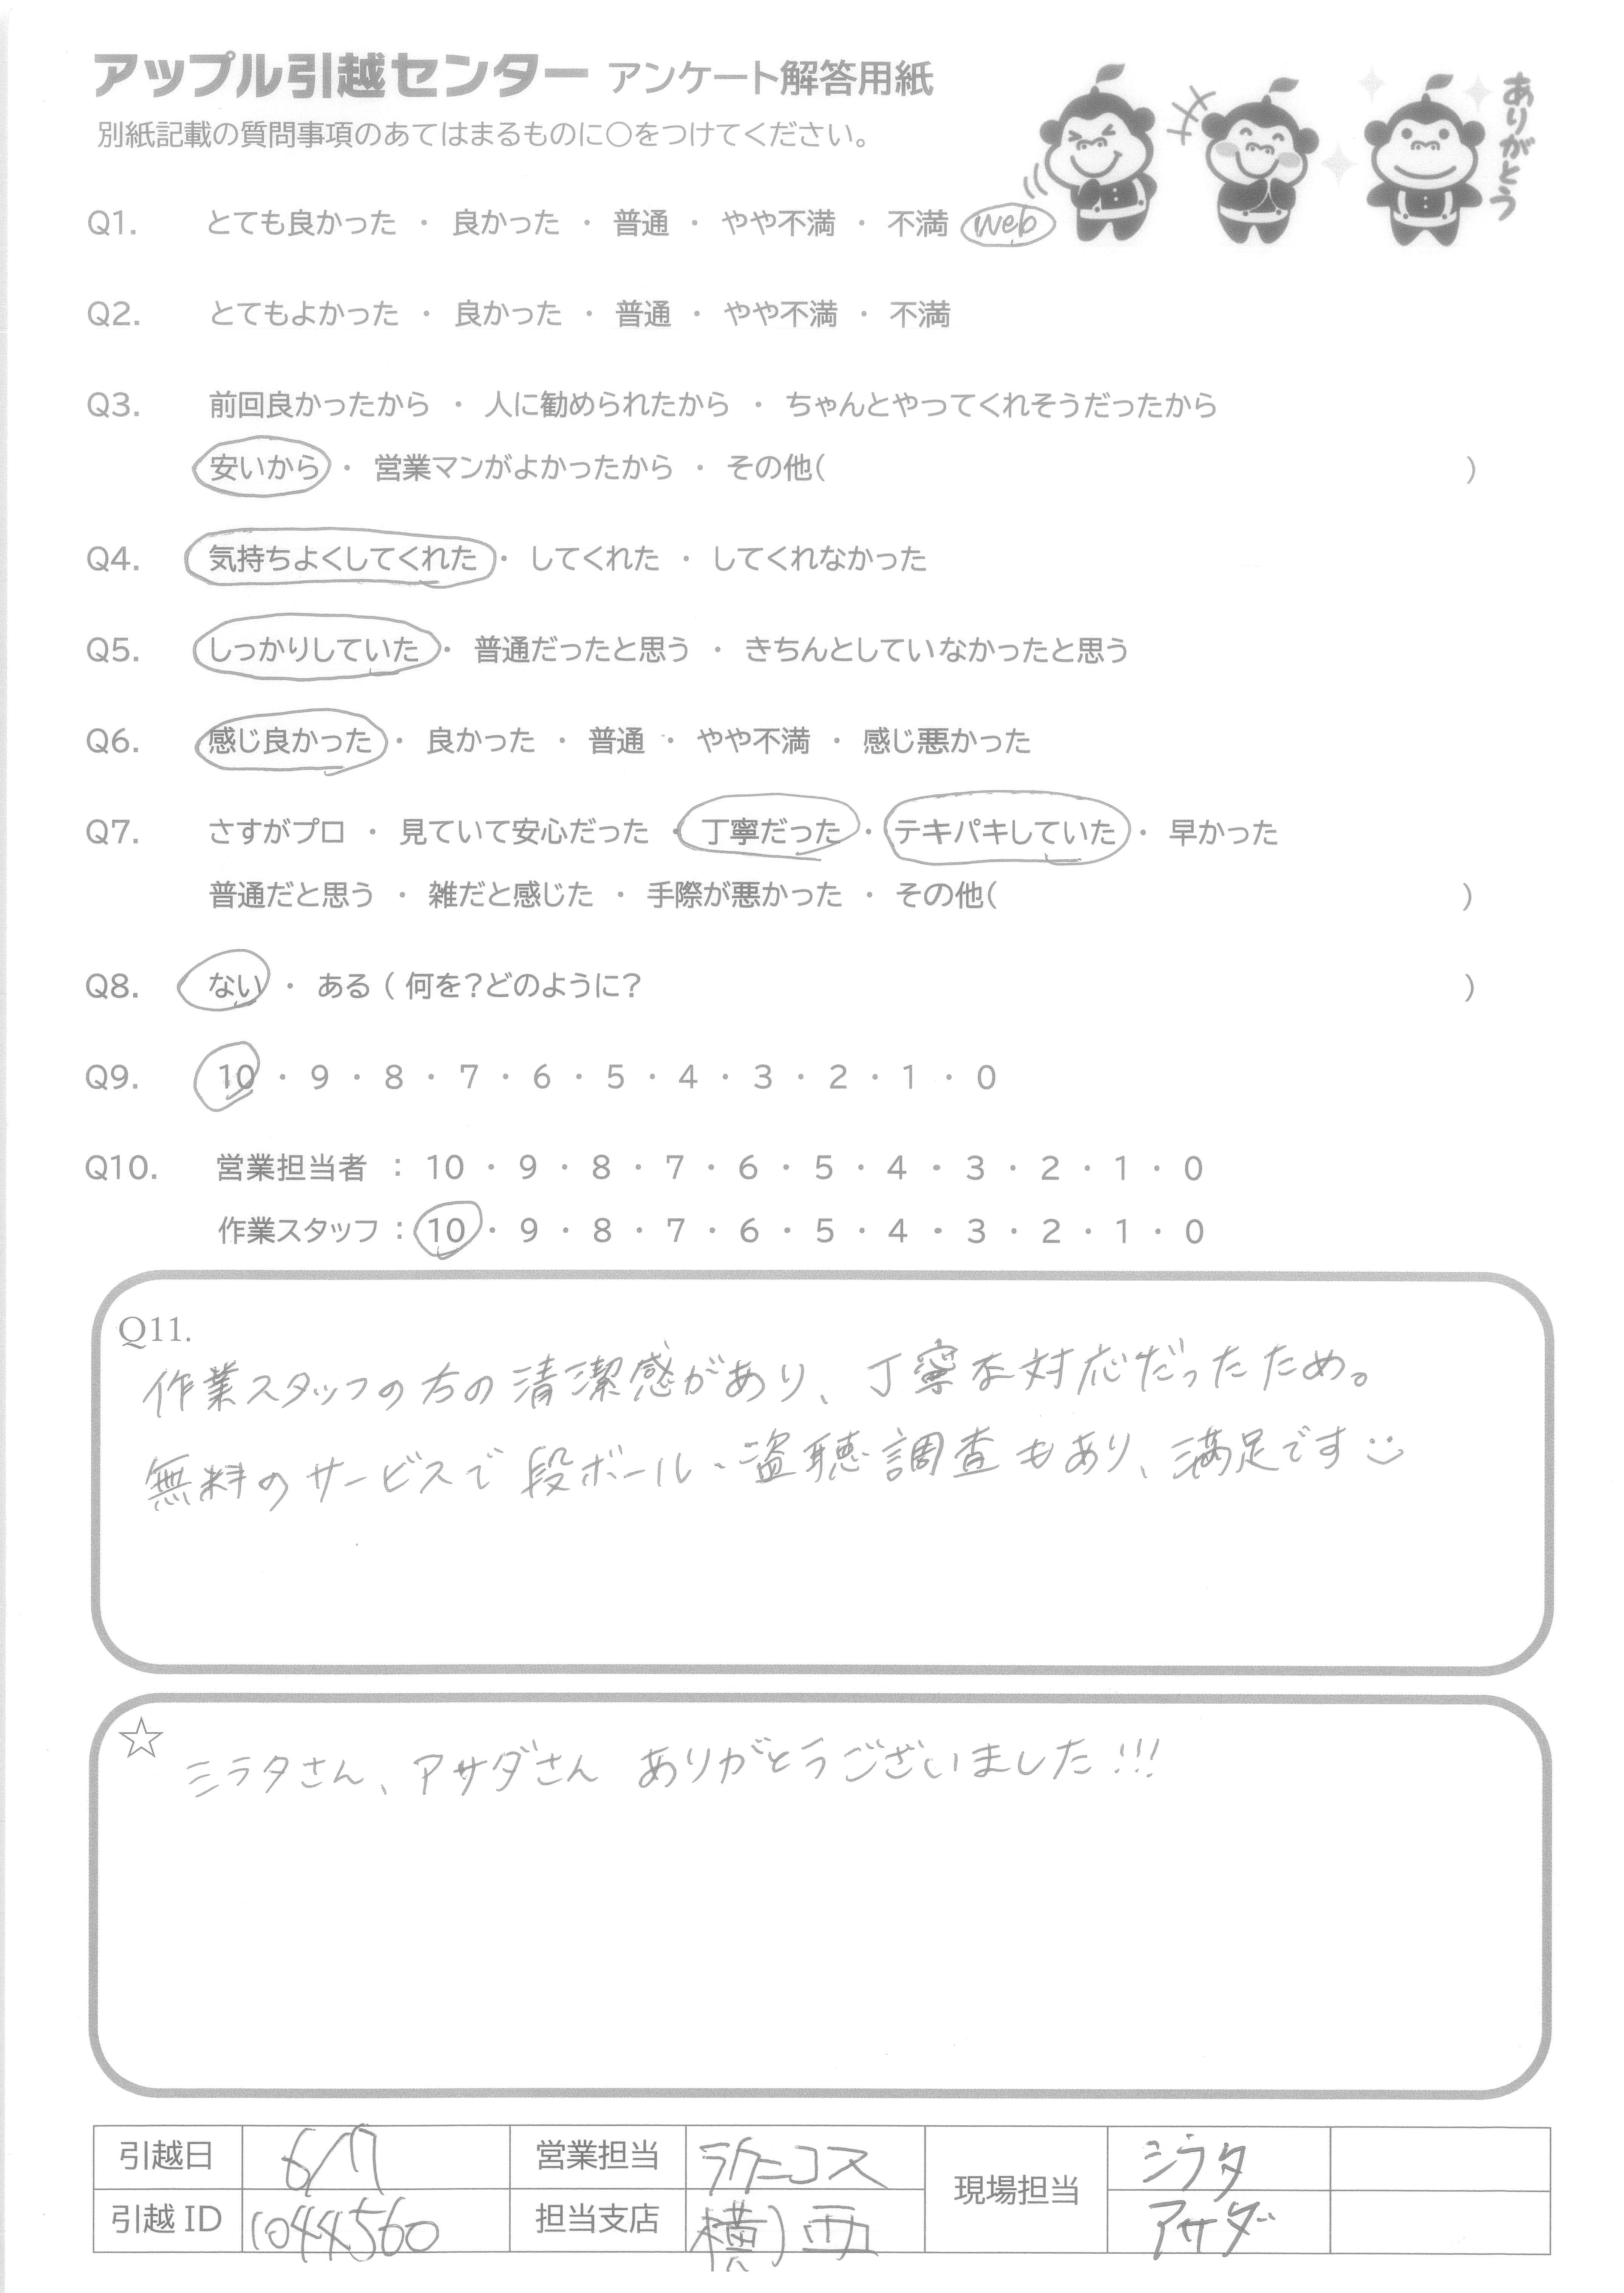 アップル引越センター アンケート解答用紙
別紙記載の質問事項のあてはまるものに○をつけてください。
ありがとう
Q1. とても良かった ・ 良かった ・ 普通 ・ やや不満 ・ 不満 web
Q2. とてもよかった ・ 良かった ・ 普通 ・ やや不満 ・ 不満
Q3. 前回良かったから ・ 人に勧められたから ・ ちゃんとやってくれそうだったから
安いから ・ 営業マンがよかったから ・ その他( )
Q4. 気持ちよくしてくれた ・ してくれた ・ してくれなかった
Q5. しっかりしていた ・ 普通だったと思う ・ きちんとしていなかったと思う
Q6. 感じ良かった ・ 良かった ・ 普通 ・ やや不満 ・ 感じ悪かった
Q7. さすがプロ ・ 見ていて安心だった ・ 丁寧だった ・ テキパキしていた ・ 早かった
普通だと思う ・ 雑だと感じた ・ 手際が悪かった ・ その他( )
Q8. ない ・ ある ( 何を?どのように? )
Q9. 10 ・ 9 ・ 8 ・ 7 ・ 6 ・ 5 ・ 4 ・ 3 ・ 2 ・ 1 ・ 0
Q10. 営業担当者 : 10 ・ 9 ・ 8 ・ 7 ・ 6 ・ 5 ・ 4 ・ 3 ・ 2 ・ 1 ・ 0
作業スタッフ : 10 ・ 9 ・ 8 ・ 7 ・ 6 ・ 5 ・ 4 ・ 3 ・ 2 ・ 1 ・ 0
Q11.
作業スタッフの方の清潔感があり、丁寧な対応だったため。
無料のサービスで段ボール・盗聴調査もあり、満足です
☆
シラタさん、アサダさん ありがとうございました!!!
引越日 6/7 営業担当 現場担当 シラタ
引越ID 1044560 担当支店 アサダ